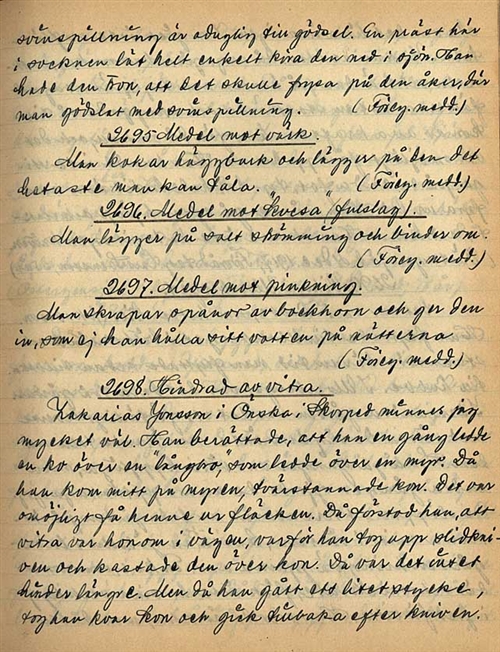 svinspillning är oduglig till gödsel. En präst här
i socknen lät helt enkelt köra den ned i sjön. Han
hade den tron, att det skulle frysa på den åker, där
man gödslat med svinspillning. (Föreg. medd.)
2695 Medel mot värk.
Man kokar häggbark och lägger på den det
hetaste man kan tåla. „ „ (Föreg. medd.)
2696. Medel mot kvesa (fulslag).
Man lägger på salt strömming och binder om.
(Föreg. medd.)
2697. Medel mot pinkning.
Man skrapar spånor av bockhorn och ger den
in, som ej kan hålla sitt vatten på nätterna
(Föreg. medd.)
2698. Hindrad av vitra.
Zakarias Jonsson i Önska i Skorped minnes jag
mycket väl. Han berättade, att han en gång ledde
en ko över en "långbro", som ledde över en myr. Då
han kom mitt på myren, tvärstannade kon. Det var
omöjligt få henne ur fläcken. Då förstod han, att
vitra var honom i vägen, varför han tog upp slidkni-
ven och kastade den över kon. Då var det intet
hinder längre. Men då han gått ett litet stycke,
tog han kvar kon och gick tillbaka efter kniven.